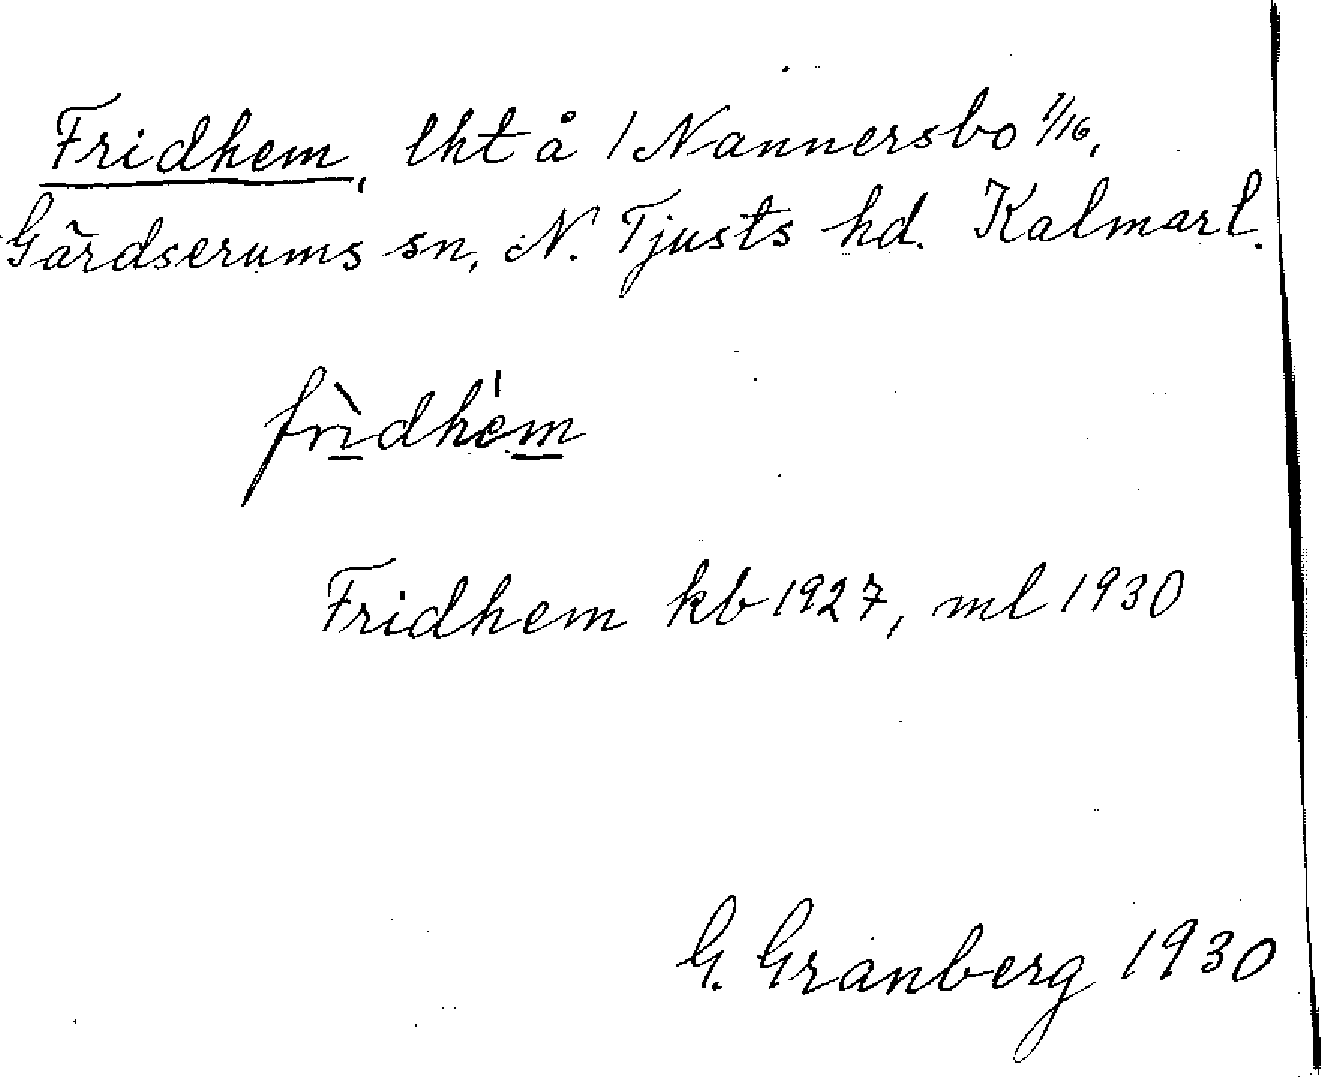 Fridhem, lht å 1 Nannersbo 1/16,
Gärdserums sn, N. Tjusts hd. Kalmar l.
frìdhe̍m
Fridhem kb 1927, ml 1930
G. Granberg 1930